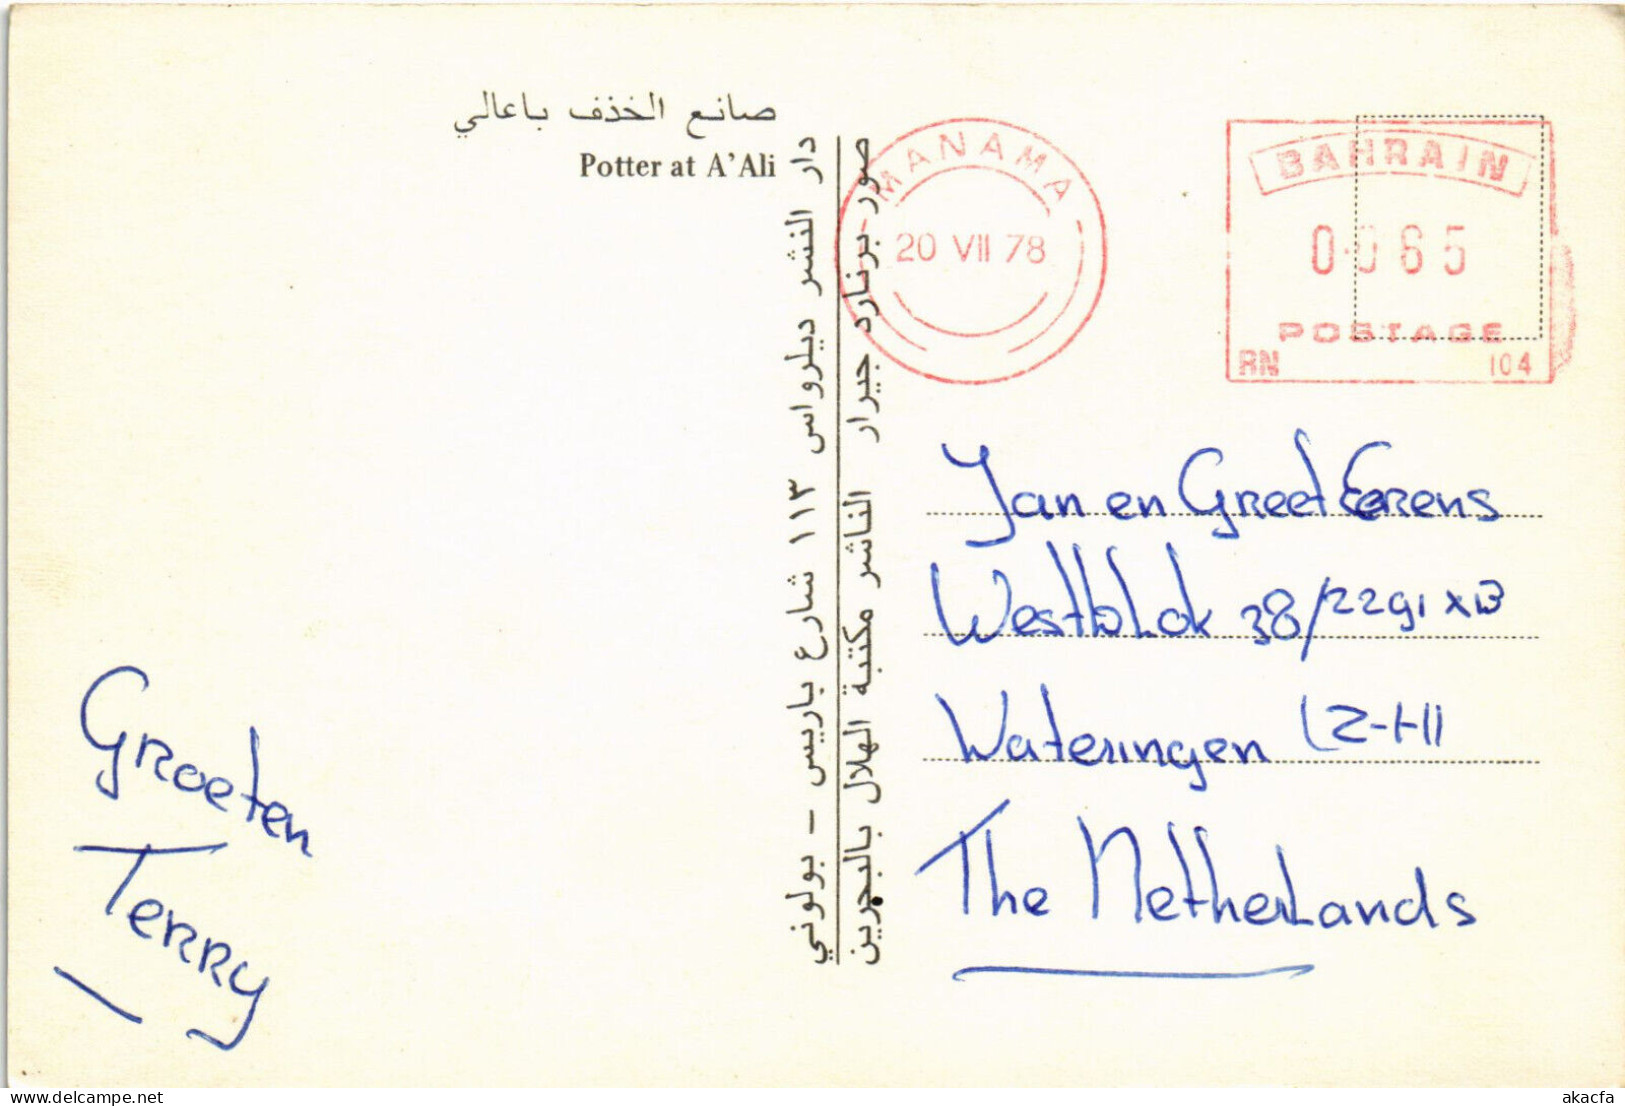 صانع الخذف باعالي
Potter at A'Ali
دار النشر ديلرواس ١١٣ شارع باريس - بولوني
صور برنارد جيرار الناشر مكتبة الهلال بالبحرين
MANAMA
20 VII 78
BAHRAIN
0.065
POSTAGE
RN 104
Jan en Greet Eerens
Westblok 38/2291 XB
Wateringen (Z-H)
The Netherlands
Groeten
Terry
delcampe.net
akacfa